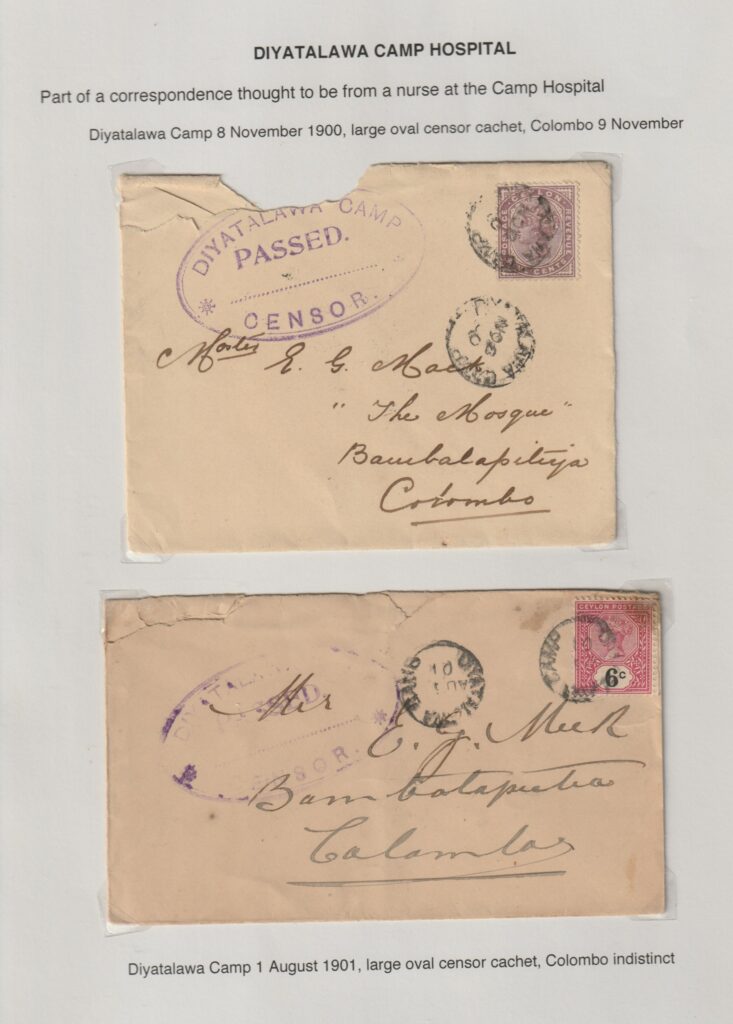 DIYATALAWA CAMP HOSPITAL
Part of a correspondence thought to be from a nurse at the Camp Hospital
Diyatalawa Camp 8 November 1900, large oval censor cachet, Colombo 9 November
DIYATALAWA CAMP
PASSED.
CENSOR.
POSTAGE CEYLON REVENUE
Master E. G.
"The Mosque"
Bambalapitiya
Colombo
DIYATALAWA
CENSOR.
CEYLON POSTAGE
6c
CAMP
E. G. Meek
Colombo
Diyatalawa Camp 1 August 1901, large oval censor cachet, Colombo indistinct